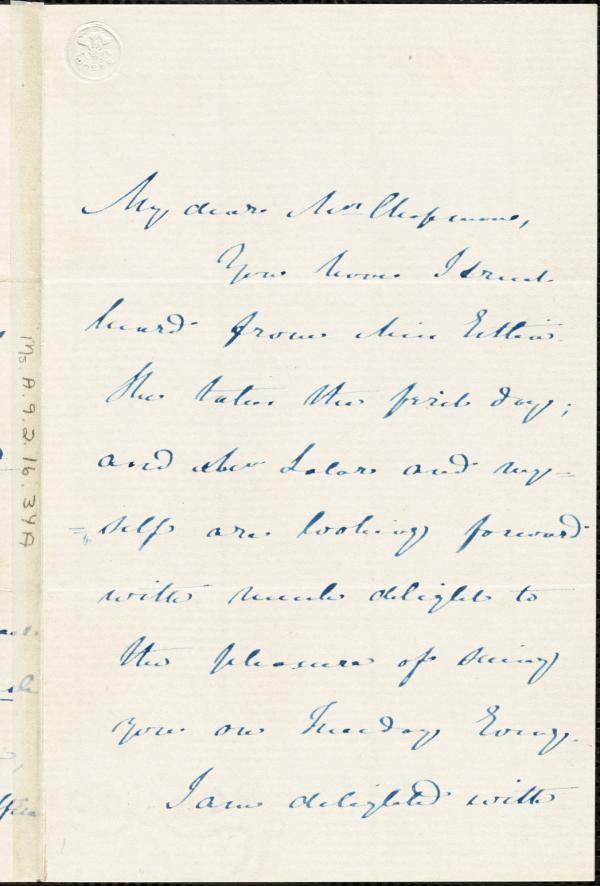 My dear Mrs Chapman,
You have I trust
heard from Miss Estlin.
She takes the first day;
and Mrs and my=
=self are looking forward
with much delight to
the pleasure of seeing
you on Tuesday Eveng.
I am delighted with
Ms. A. 9. 2. 16. 34A